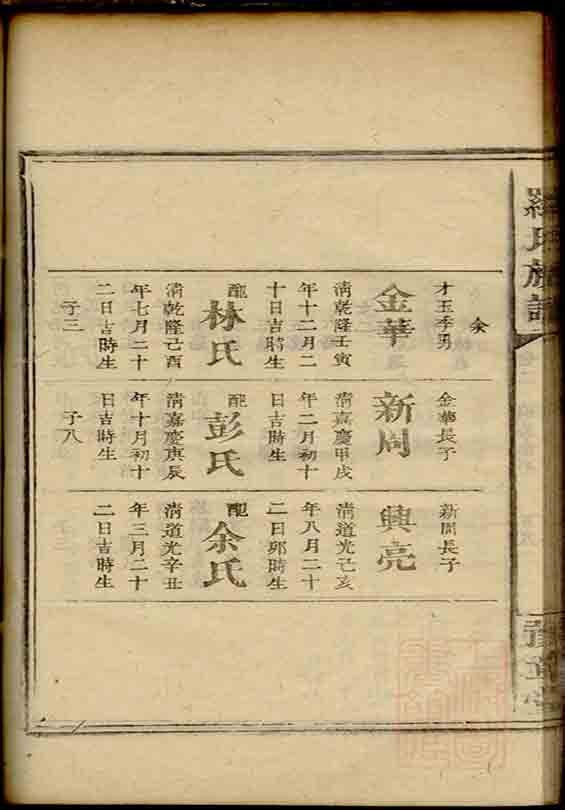 羅氏族譜
豫章堂
才玉季男
金華
清乾隆壬寅
年十二月二
十日吉時生
配林氏
清乾隆己酉
年七月二十
二日吉時生
子三
金華長子
新周
清嘉慶甲戌
年二月初十
日吉時生
配彭氏
清嘉慶庚辰
年十月初十
日吉時生
子八
新周長子
興亮
清道光己亥
年八月二十
二日卯時生
配余氏
清道光辛丑
年三月二十
二日吉時生